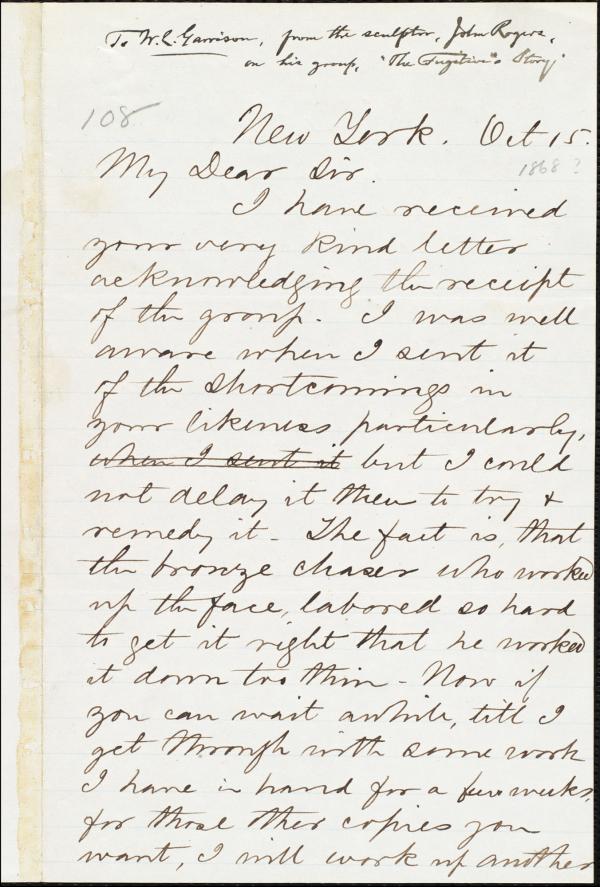 To W. L. Garrison, from the sculptor, John Rogers,
on his group, "The Fugitive's Story."
108
New York. Oct 15.
1868?
My Dear Sir.
I have received
your very kind letter
acknowledging the receipt
of the group. I was well
aware when I sent it
of the shortcomings in
your likeness particularly,
when I sent it but I could
not delay it then to try &
remedy it - The fact is, that
the bronze chaser who worked
up the face, labored so hard
to get it right that he worked
it down too thin - Now if
you can wait awhile, till I
get through with some work
I have in hand for a few weeks,
for those other copies you
want, I will work up another